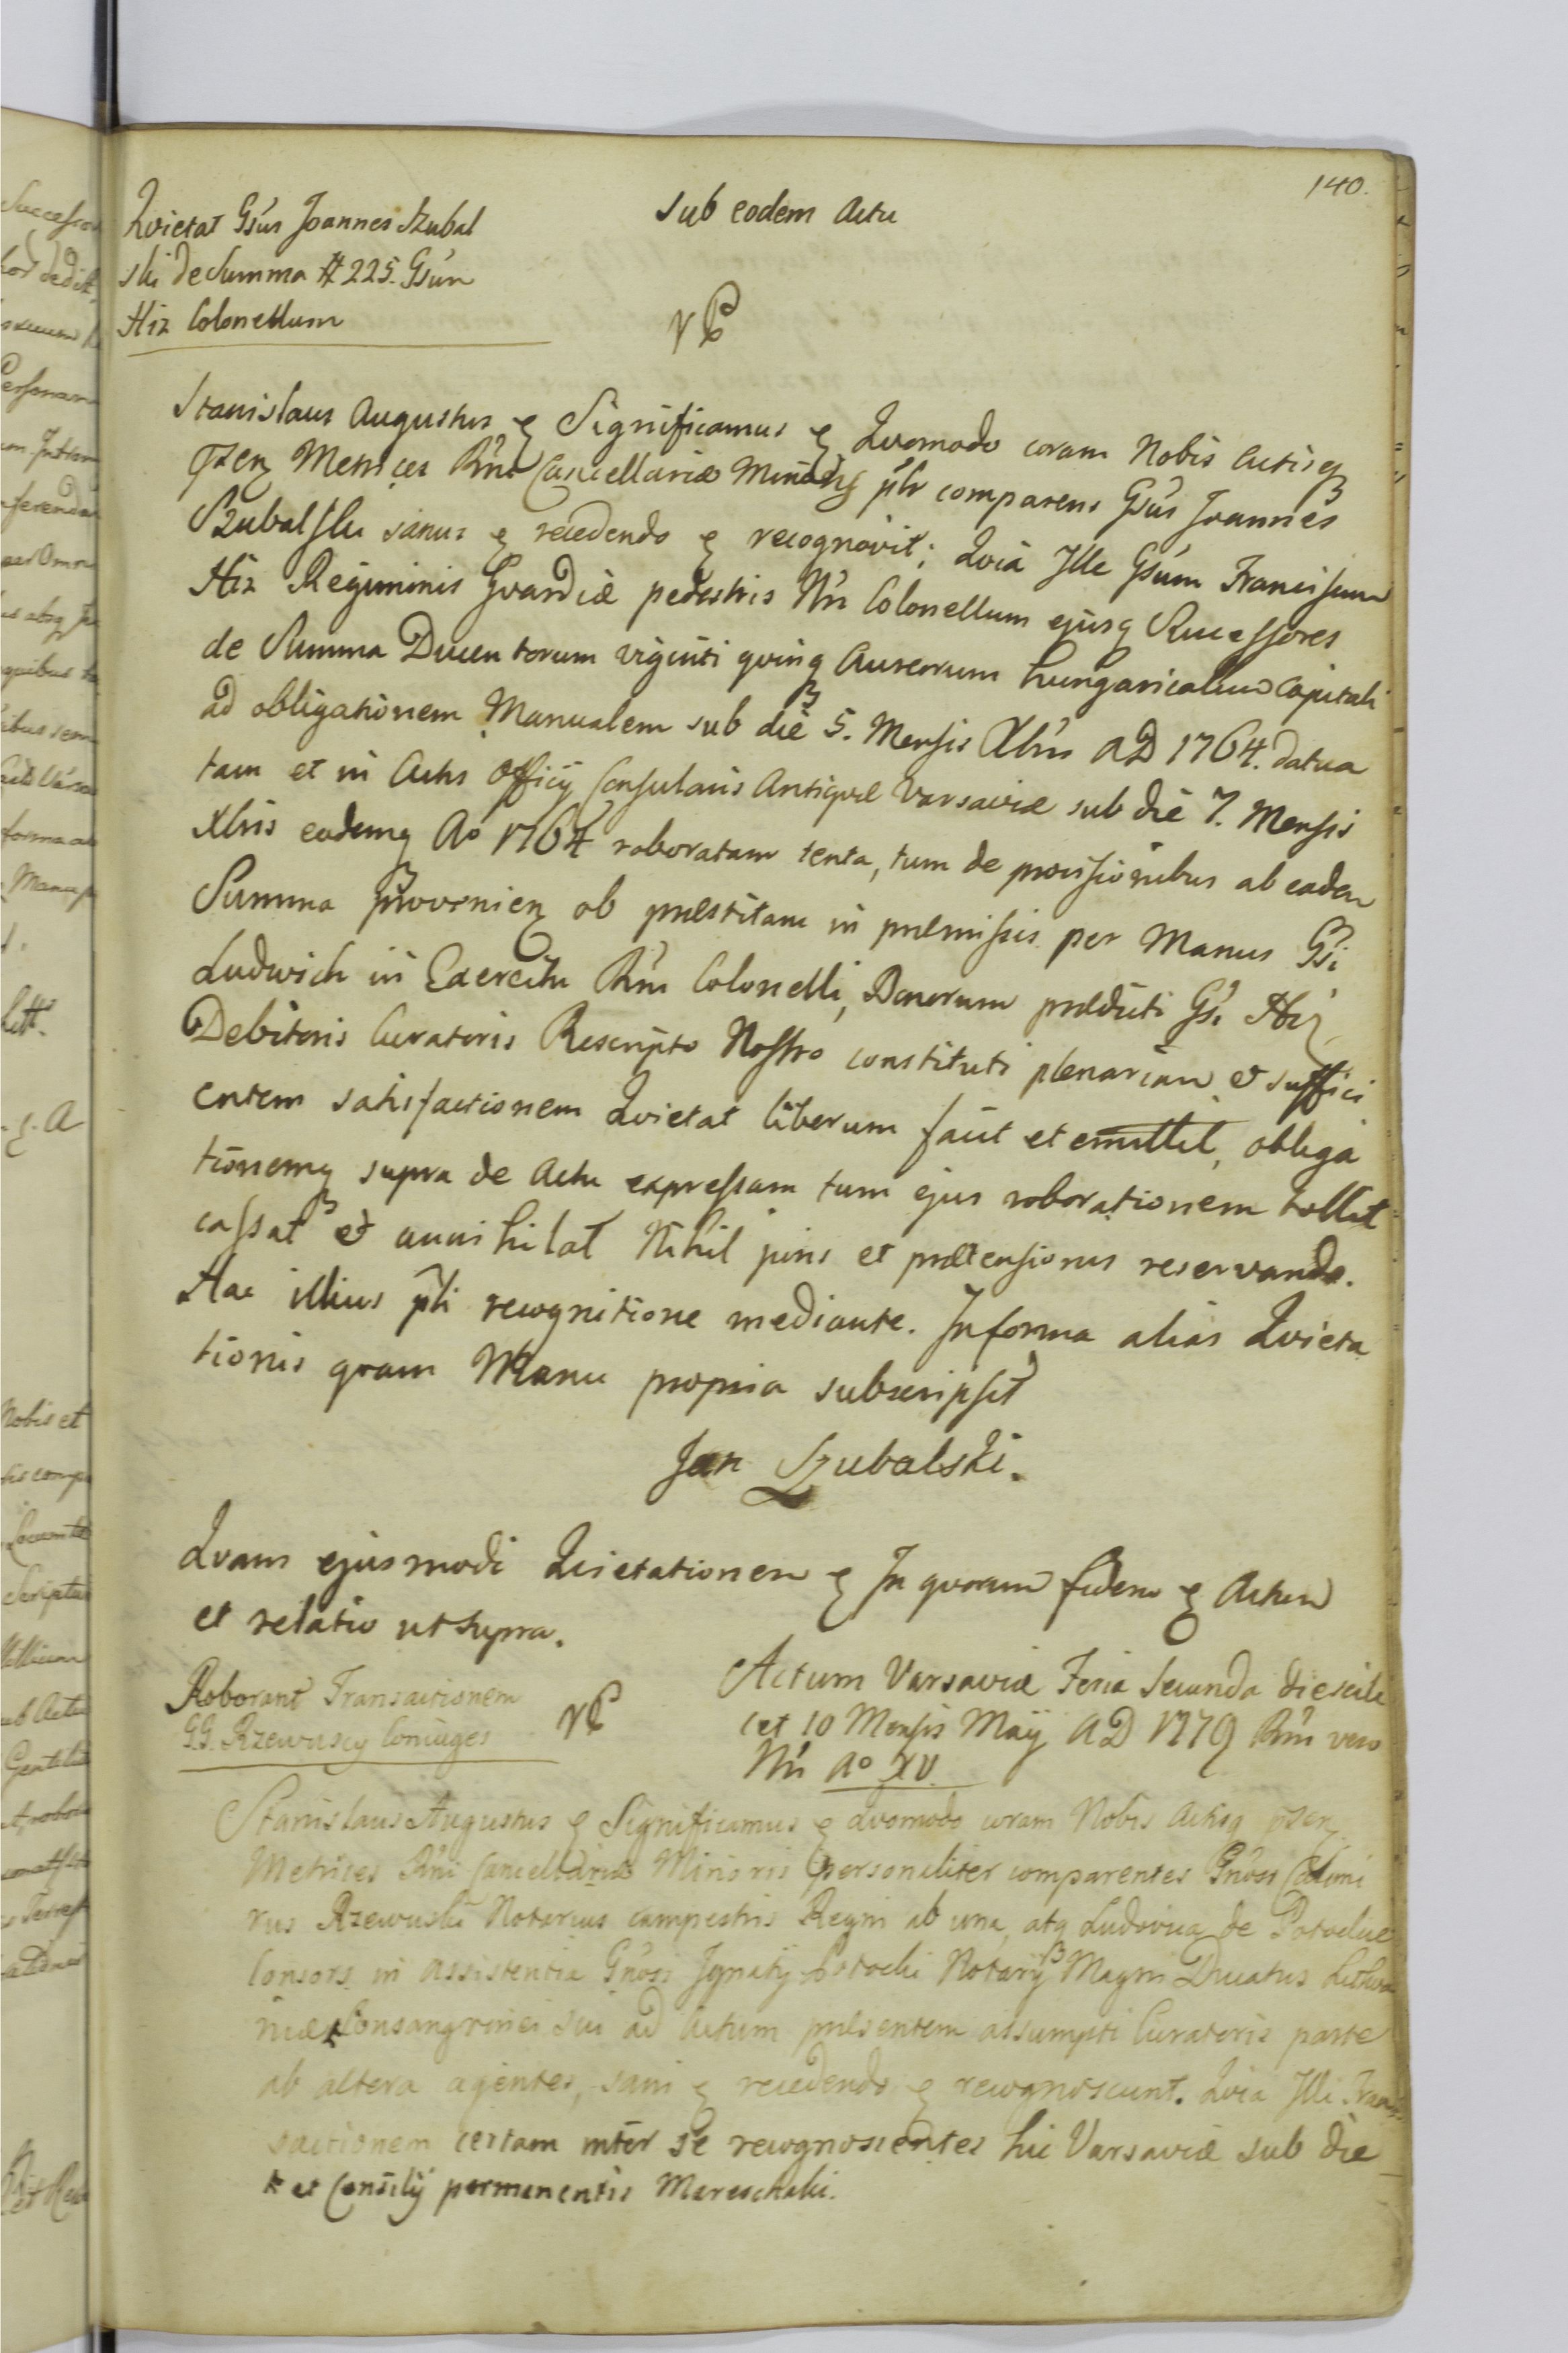 140.
Sub eodem Actu
Qvietat Gsus Joannes Szubal
ski de Summa # 225. Gsun
Hiz Colonellum
Stanislaus Augustus Significamus Qvomodo coram Nobis Actisq
pzen Metrices Rni Cancellariæ Minoris plr comparens Gsus Joannes
Szubalski sanus recedendo recognovit; Qvia Ille Gsum Franciscum
Hiz Regiminis Gvardiæ pedestris Rni Colonellum ejusq Successores
de Summa Ducentorum viginti qvinq Aureorum hungaricalium Capitali
ad obligationem Manualem sub die 5. Mensis Xbris AD 1764. datua
tam et in Actis Officij Consularis Antiqvæ Varsaviæ sub die 7. Mensis
Xbris eodemq Ao 1764 roboratam tenta, tum de provisionibus ab eadem
Summa provenien ob præstitam in præmissis per Manus Gsi
Ludwich in Exercitu Rni Colonelli, Bonorum prædicti Gsi Hiz
Debitoris Curatoris Rescripto Nostro constituti plenariam et suffici
entem satisfactionem Qvietat liberum facit et emittit, obliga
tionemq supra de Actu expressam tum ejus roborationem tollit
cassat et annihilat Nihil juris et prætensionis reservando.
Hac illius pli recognitione mediante. In forma alias Qvieta
tionis qvam Manu propria subscripsit
Jan Szubalski.
Qvam ejusmodi Qvietationem In qvorum fidem Actum
et relatio ut supra.
Roborant Transactionem
G.G. Rzewuscy Coniuges
Actum Varsaviæ Feria Secunda die scili
cet 10 Mensis Maij AD 1779 Rni vero
Nri Ao XV
Stanislaus Augustus Significamus Qvomodo coram Nobis Actisq pzen
Metrices Rni Cancellariæ Minoris personaliter comparentes Gnosi Casimi
rus Rzewuski Notarius campestris Regni ab una, atq Ludovica de Potockie
Consors in assistentia Gnosi Ignatij Potocki Notarij Magni Ducatus Lithva
niæ Consangvinei sui ad Actum præsentem assumpti Curatoris parte
ab altera agentes, sani recedendo recognoscunt. Qvia Illi Tran
sactionem certam inter se recognoscentes hic Varsaviæ sub die
et Consilij permanentis Mareschalci.